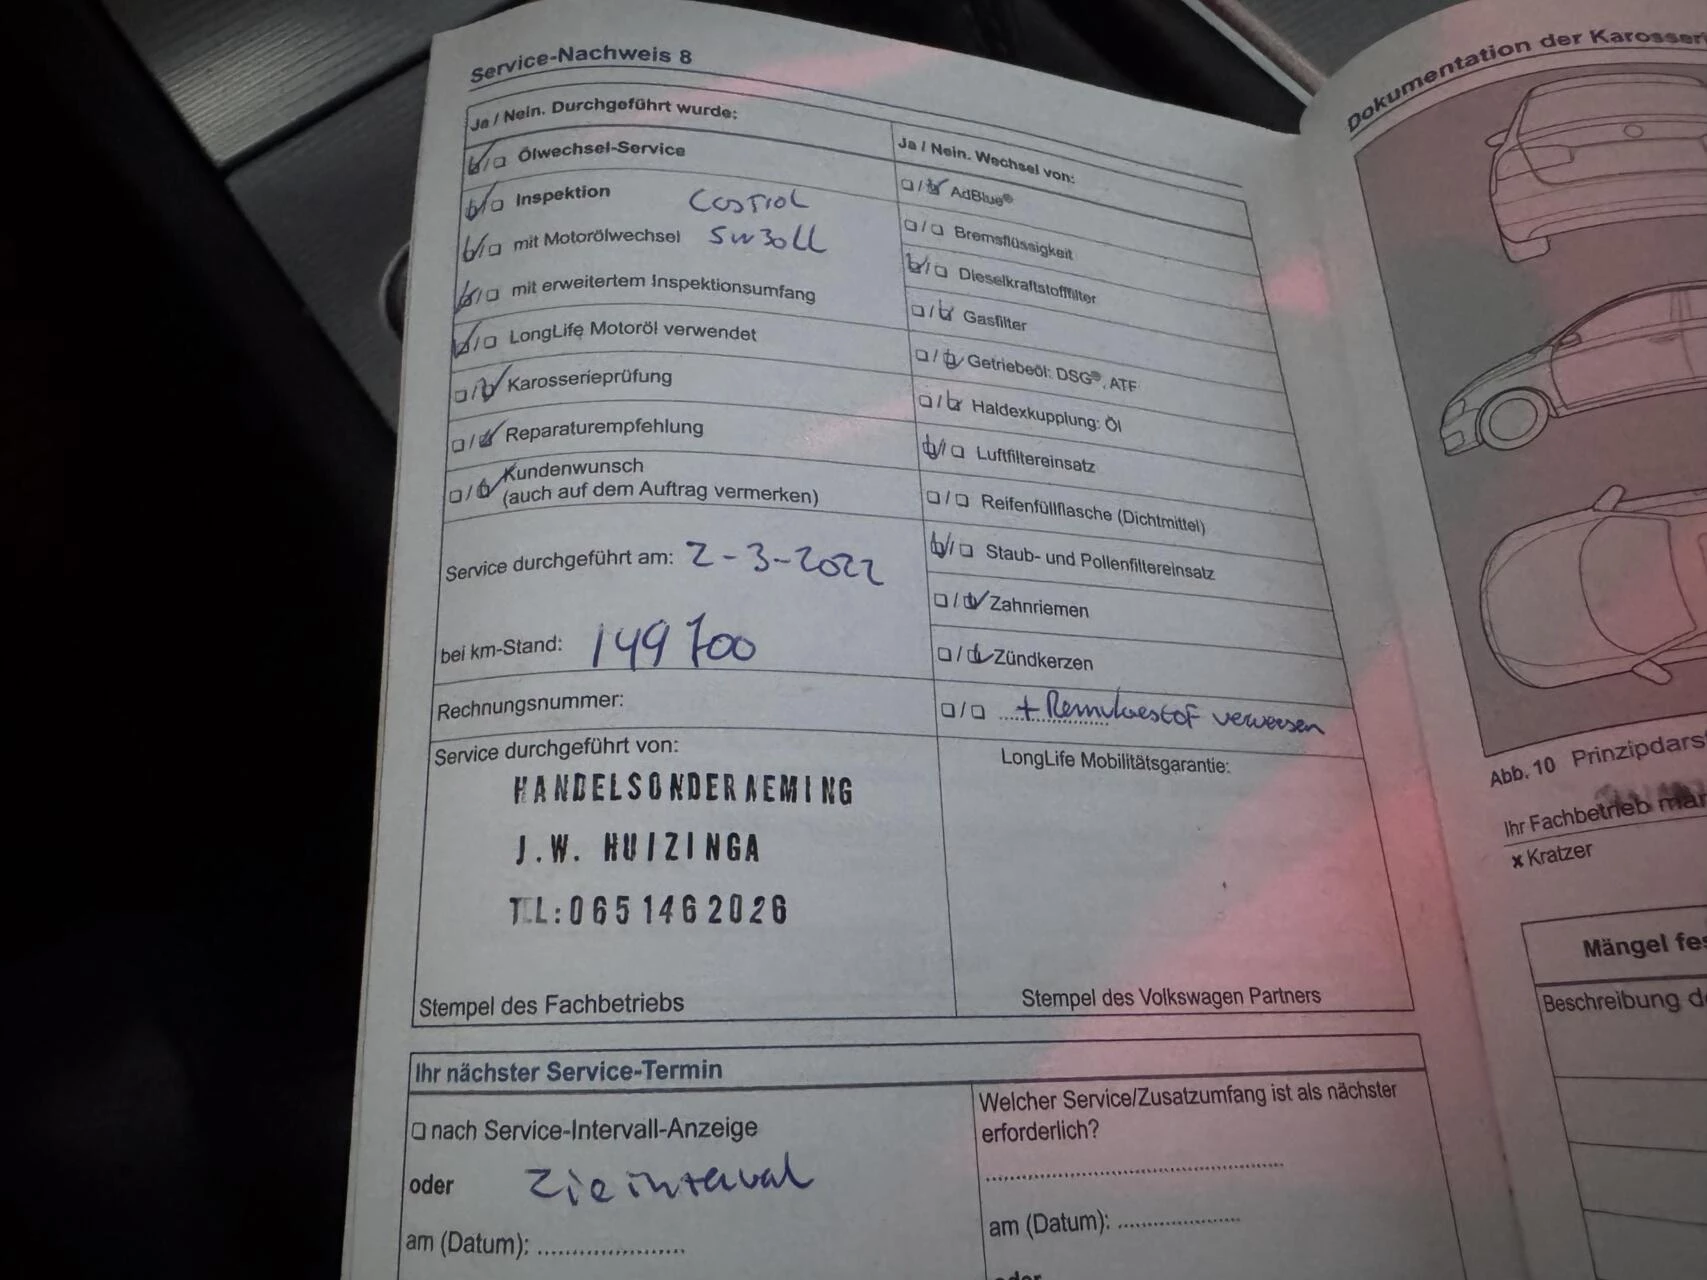 Service-Nachweis 8
Ja / Nein. Durchgeführt wurde:
Ölwechsel-Service
Inspektion
Castrol
mit Motorölwechsel
5w30LL
mit erweitertem Inspektionsumfang
LongLife Motoröl verwendet
Karosserieprüfung
Reparaturempfehlung
Kundenwunsch
(auch auf dem Auftrag vermerken)
Service durchgeführt am: 2-3-2022
bei km-Stand: 149700
Rechnungsnummer:
Service durchgeführt von:
HANDELSONDERNEMING
J.W. HUIZINGA
TEL:0651462026
Stempel des Fachbetriebs
Ja / Nein. Wechsel von:
AdBlue®
Bremsflüssigkeit
Dieselkraftstofffilter
Gasfilter
Getriebeöl: DSG®, ATF
Haldexkupplung: Öl
Luftfiltereinsatz
Reifenfüllflasche (Dichtmittel)
Staub- und Pollenfiltereinsatz
Zahnriemen
Zündkerzen
+
LongLife Mobilitätsgarantie:
Stempel des Volkswagen Partners
Ihr nächster Service-Termin
nach Service-Intervall-Anzeige
oder
Zie interval
am (Datum):
Welcher Service/Zusatzumfang ist als nächster
erforderlich?
am (Datum):
oder
Dokumentation der Karosserie
Abb. 10 Prinzipdars
Ihr Fachbetrieb mar
x Kratzer
Mängel fes
Beschreibung de